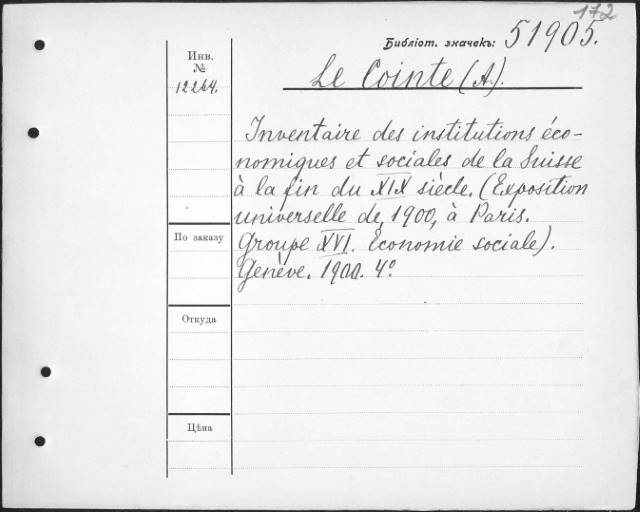 172
Библіот. значекъ: 51905.
Инв.
№
12264.
Le Cointe (A).
Inventaire des institutions éco-
nomiques et sociales de la Suisse
à la fin du XIX siècle. (Exposition
universelle de 1900, à Paris.
Groupe XVI. Economie sociale).
Genève. 1900. 4º
По заказу
Откуда
Цѣна